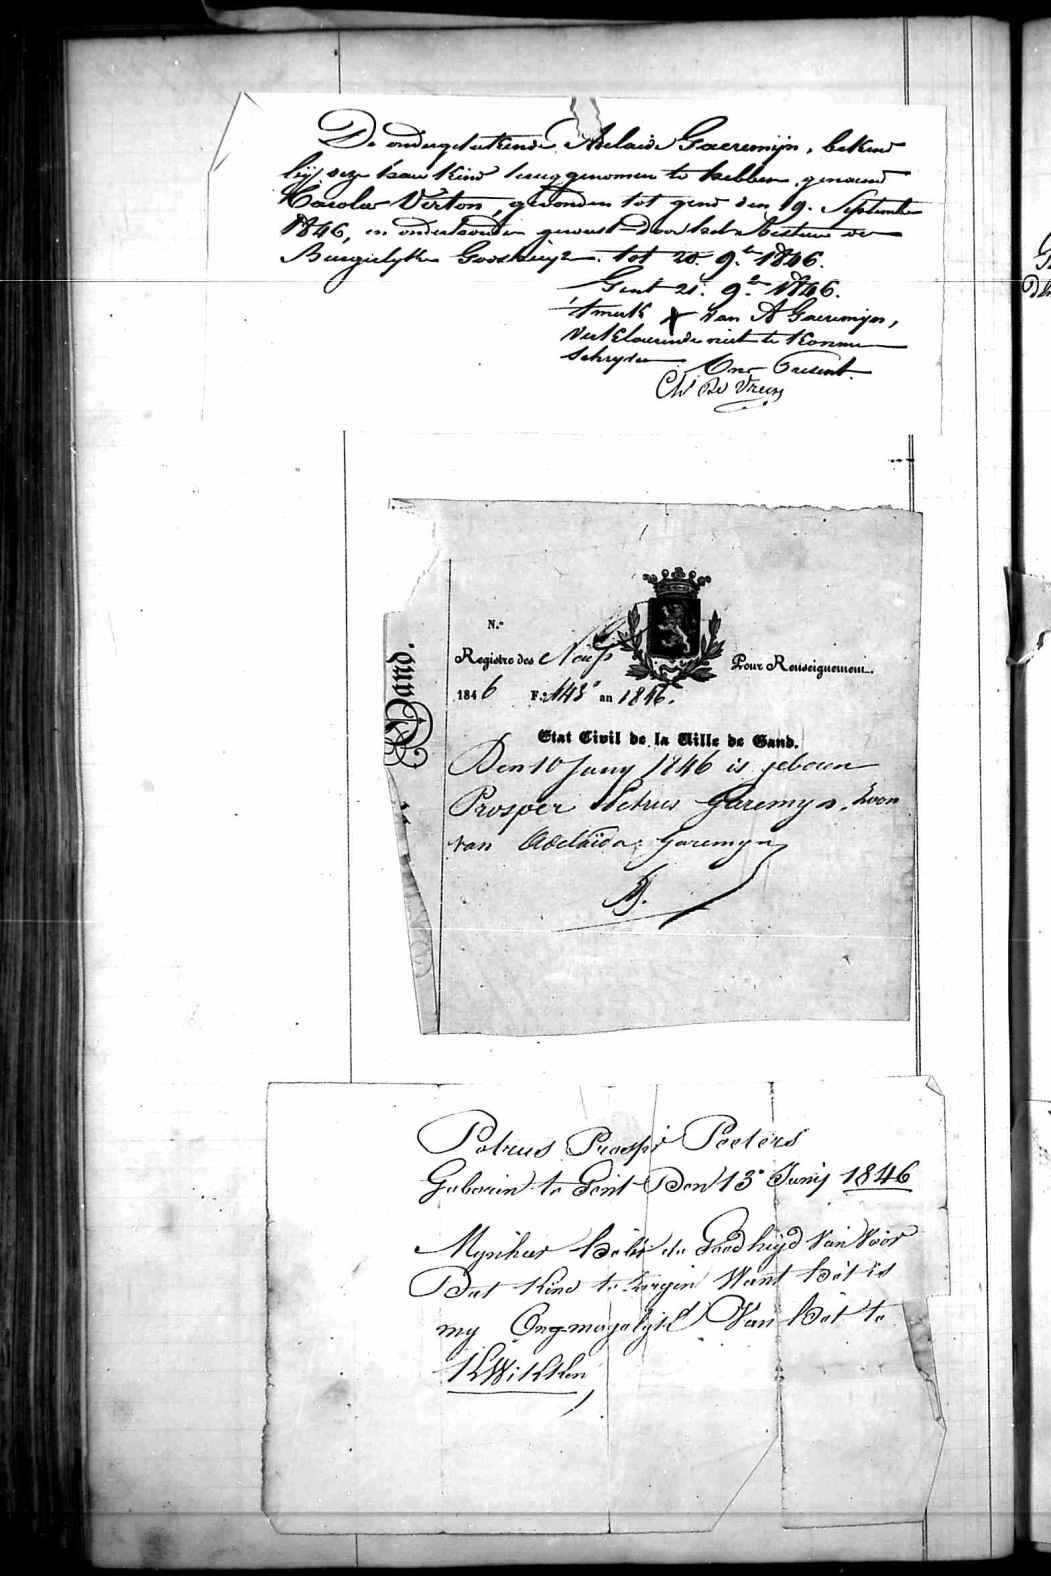 De ondergeteekende Adelaide Gaeremijn, bekend
bij deze haar kind teruggenomen te hebben, genaemd
Carolus Verton, gevonden tot gend den 19. September
1846, en onderhouden geweest door het bestuer der
Burgerlyke Godshuizen tot 20. 9.e 1846.
Gent 21. 9.e 1846.
't merk X van A Gaeremijn,
verklaerende niet te konnen
schryven
Present
Ch De Vreese
N.o
Registre des Naiss Pour Renseignement.
1846 F.o 143 an 1846.
Gand.
Etat Civil de la Ville de Gand.
Den 10 Juny 1846 is geboren
Prosper Petrus Garemyn, Zoon
van Adelaïda Garemyn
Petrus Prosper Peeters
Geboren te Gent Den 13 Junij 1846
Mynheer de Goedhyd Van Voor
Dat Kind te Zorgen Want Het is
my Ongmogelyk Van Het te
KWiKKen